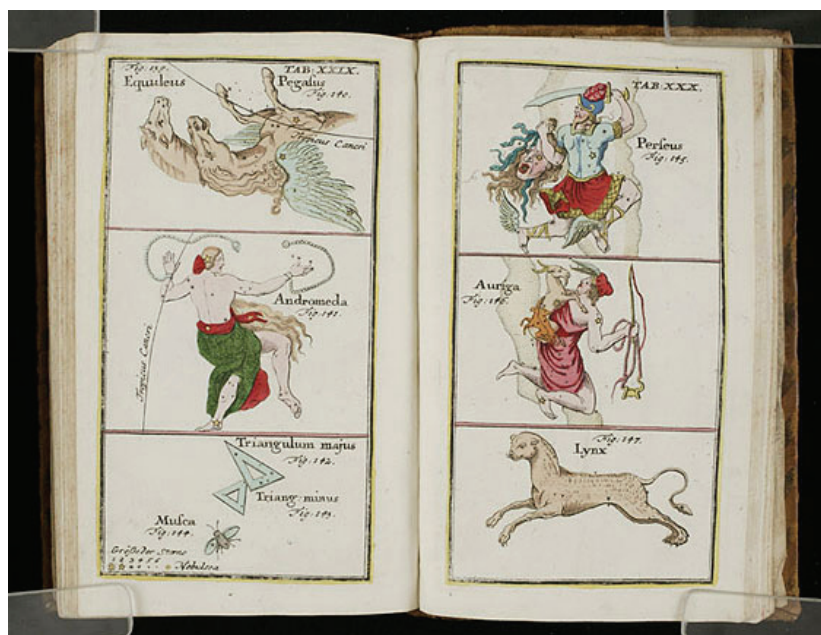 Fig: 139.
Equuleus
TAB: XXIX.
Pegasus
Fig: 140.
Tropicus Cancri
Andromeda
Fig: 141.
Tropicus Cancri
Triangulum majus
Fig: 142.
Triang: minus
Fig: 143.
Musca
Fig: 144.
Größe der Sterne
1 2 3 4 5 6
Nebulosa
TAB: XXX.
Perseus
Fig: 145.
Auriga
Fig: 146.
Fig: 147.
Lynx